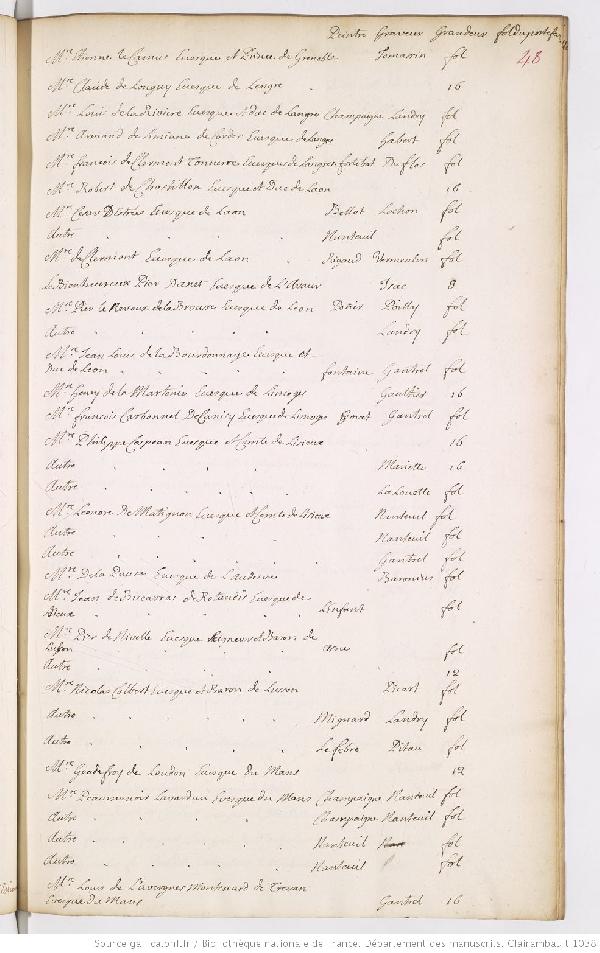 Peintre Graveur Grandeur fol du portefeu
48
Mre Etienne le Camus Evesque et Prince de Grenoble Tomassin fol
Mre Claude de Longuy Evesque de Lengre . 16
Mre Louis de la Riviere Evesque et duc de Langre Champaigne Landry fol
Mre Armand de Simiane de Gorder Evesque de Langre Habert fol
Mre francois de Clermont Tonnerre Evesque de Langres Du flos fol
Mre Robert de Chastillon Evesque et Duc de Laon 16
Mre Cesar Destrées Evesque de Laon Bellot Lochon fol
Autre . . . . Nanteuil fol
Mre de Clermont Evesque de Laon . Rigaud Vermeulen fol
Le Bienheureux Pier Evesque de L'Avaur Isac 8
Mre Pier le Neveux de la Brousse Evesque de Leon Poilly fol
Autre . . . . Landry fol
Mre Jean Louis de la Bourdonnaye Evesque et
Duc de Leon . . . . fontaine Gantrel fol
Mre Henry de la Martonie Evesque de Limoges Gaultier 16
Mre francois Carbonnel De Canisy Evesque de Limoges Gantrel fol
Mre Philippe Cospean Evesque et Comte de Lisieux 16
Autre . . . . Mariette 16
Autre . . . . La Louette fol
Mre Leonore De Matignon Evesque et Comte de Lisieux Nanteuil fol
Autre . . . . Nanteuil fol
Autre . . . . Gantrel fol
Mre Evesque de Baronius fol
Mre Jean de Evesque de
Lenfant fol
Mre Pier de Nivelle Evesque et Baron de
Luçon . . . . fol
Autre . . . . 12
Mre Nicolas Colbert Evesque et Baron de Lusson Picart fol
Autre . . . . Mignard Landry fol
Autre . . . . Le febre Pitau fol
Mre Geodefroy de Loudon Evesque du Mans 12
Mre Beaumanoir Lavardin Evesque du Mans Champaigne Nanteuil fol
Autre . . . . Champaigne Nanteuil fol
Autre . . . . Nanteuil fol
Autre . . . . Nanteuil fol
Mre Louis de Lavergnes Montenard de Tressan
Evesque du Mans Gantrel 16
Source gallica.bnf.fr / Bibliothèque nationale de France. Département des manuscrits. Clairambault 1038